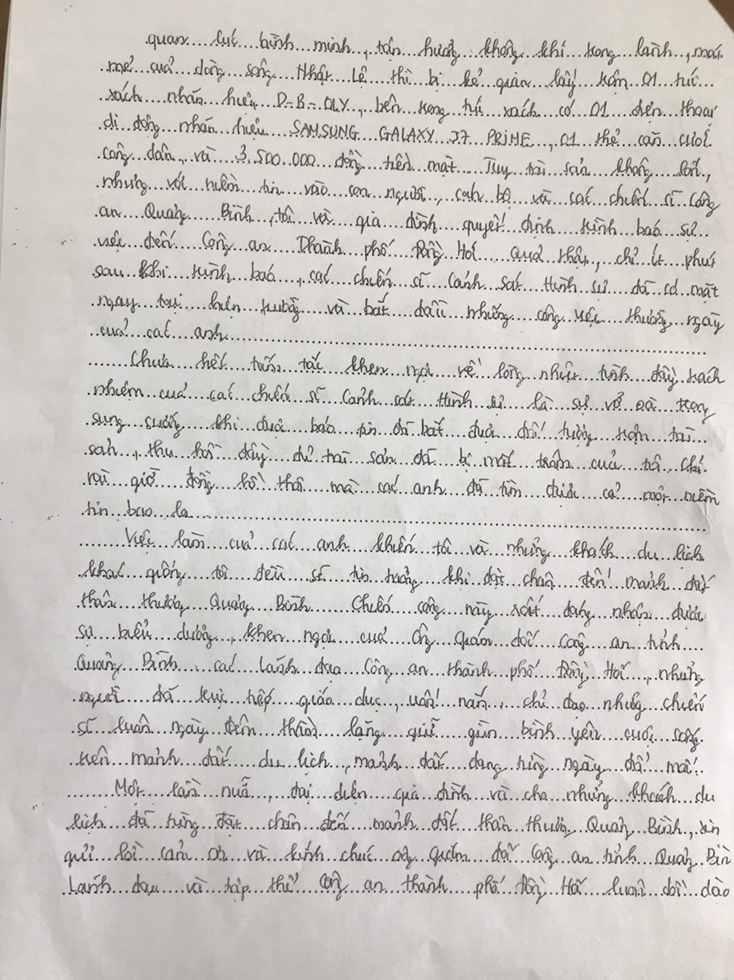 quan lúc bình minh, tận hưởng không khí trong lành, mát
mẻ của dòng sông Nhật Lệ thì bị kẻ gian lấy trộm 01 túi
xách nhãn hiệu D-B=OLY, bên trong túi xách có 01 điện thoại
di động nhãn hiệu SAMSUNG GALAXY J7 PRIME, 01 thẻ căn cước
công dân, và 3.500.000 đồng tiền mặt. Tuy tài sản không lớn,
nhưng với niềm tin vào con người, cán bộ và các chiến sĩ Công
an Quảng Bình, tôi và gia đình quyết định trình báo sự
việc đến Công an Thành phố Đồng Hới. Quả thật, chỉ ít phút
sau khi trình báo, các chiến sĩ Cảnh sát Hình sự đã có mặt
ngay tại hiện trường và bắt đầu những công việc thường ngày
của các anh
Chưa hết tấm tắc khen ngợi về lòng nhiệt tình đầy trách
nhiệm của các chiến sĩ Cảnh sát Hình sự là sự vỡ òa trong
sung sướng khi được báo tin đã bắt được đối tượng trộm tài
sản, thu hồi đầy đủ tài sản đã bị mất trộm của tôi. Chỉ
vài giờ đồng hồ thôi mà các anh đã tìm được cả một niềm
tin bao la
Việc làm của các anh khiến tôi và những khách du lịch
khác giống tôi đều sẽ tin tưởng khi đặt chân đến mảnh đất
thân thương Quảng Bình. Chiến công này rất đáng nhận được
sự biểu dương, khen ngợi của ông giám đốc Công an tỉnh
Quảng Bình, các lãnh đạo Công an thành phố Đồng Hới, những
người đã trực tiếp giáo dục, uốn nắn, chỉ đạo những chiến
sĩ luôn ngày đêm thầm lặng giữ gìn bình yên cuộc sống
trên mảnh đất du lịch, mảnh đất đang từng ngày đổi mới.
Một lần nữa, đại diện gia đình và cho những khách du
lịch đã từng đặt chân đến mảnh đất thân thương Quảng Bình, xin
gửi lời cảm ơn và kính chúc ông giám đốc Công an tỉnh Quảng Bìn
Lãnh đạo và tập thể Công an thành phố Đồng Hới luôn dồi dào